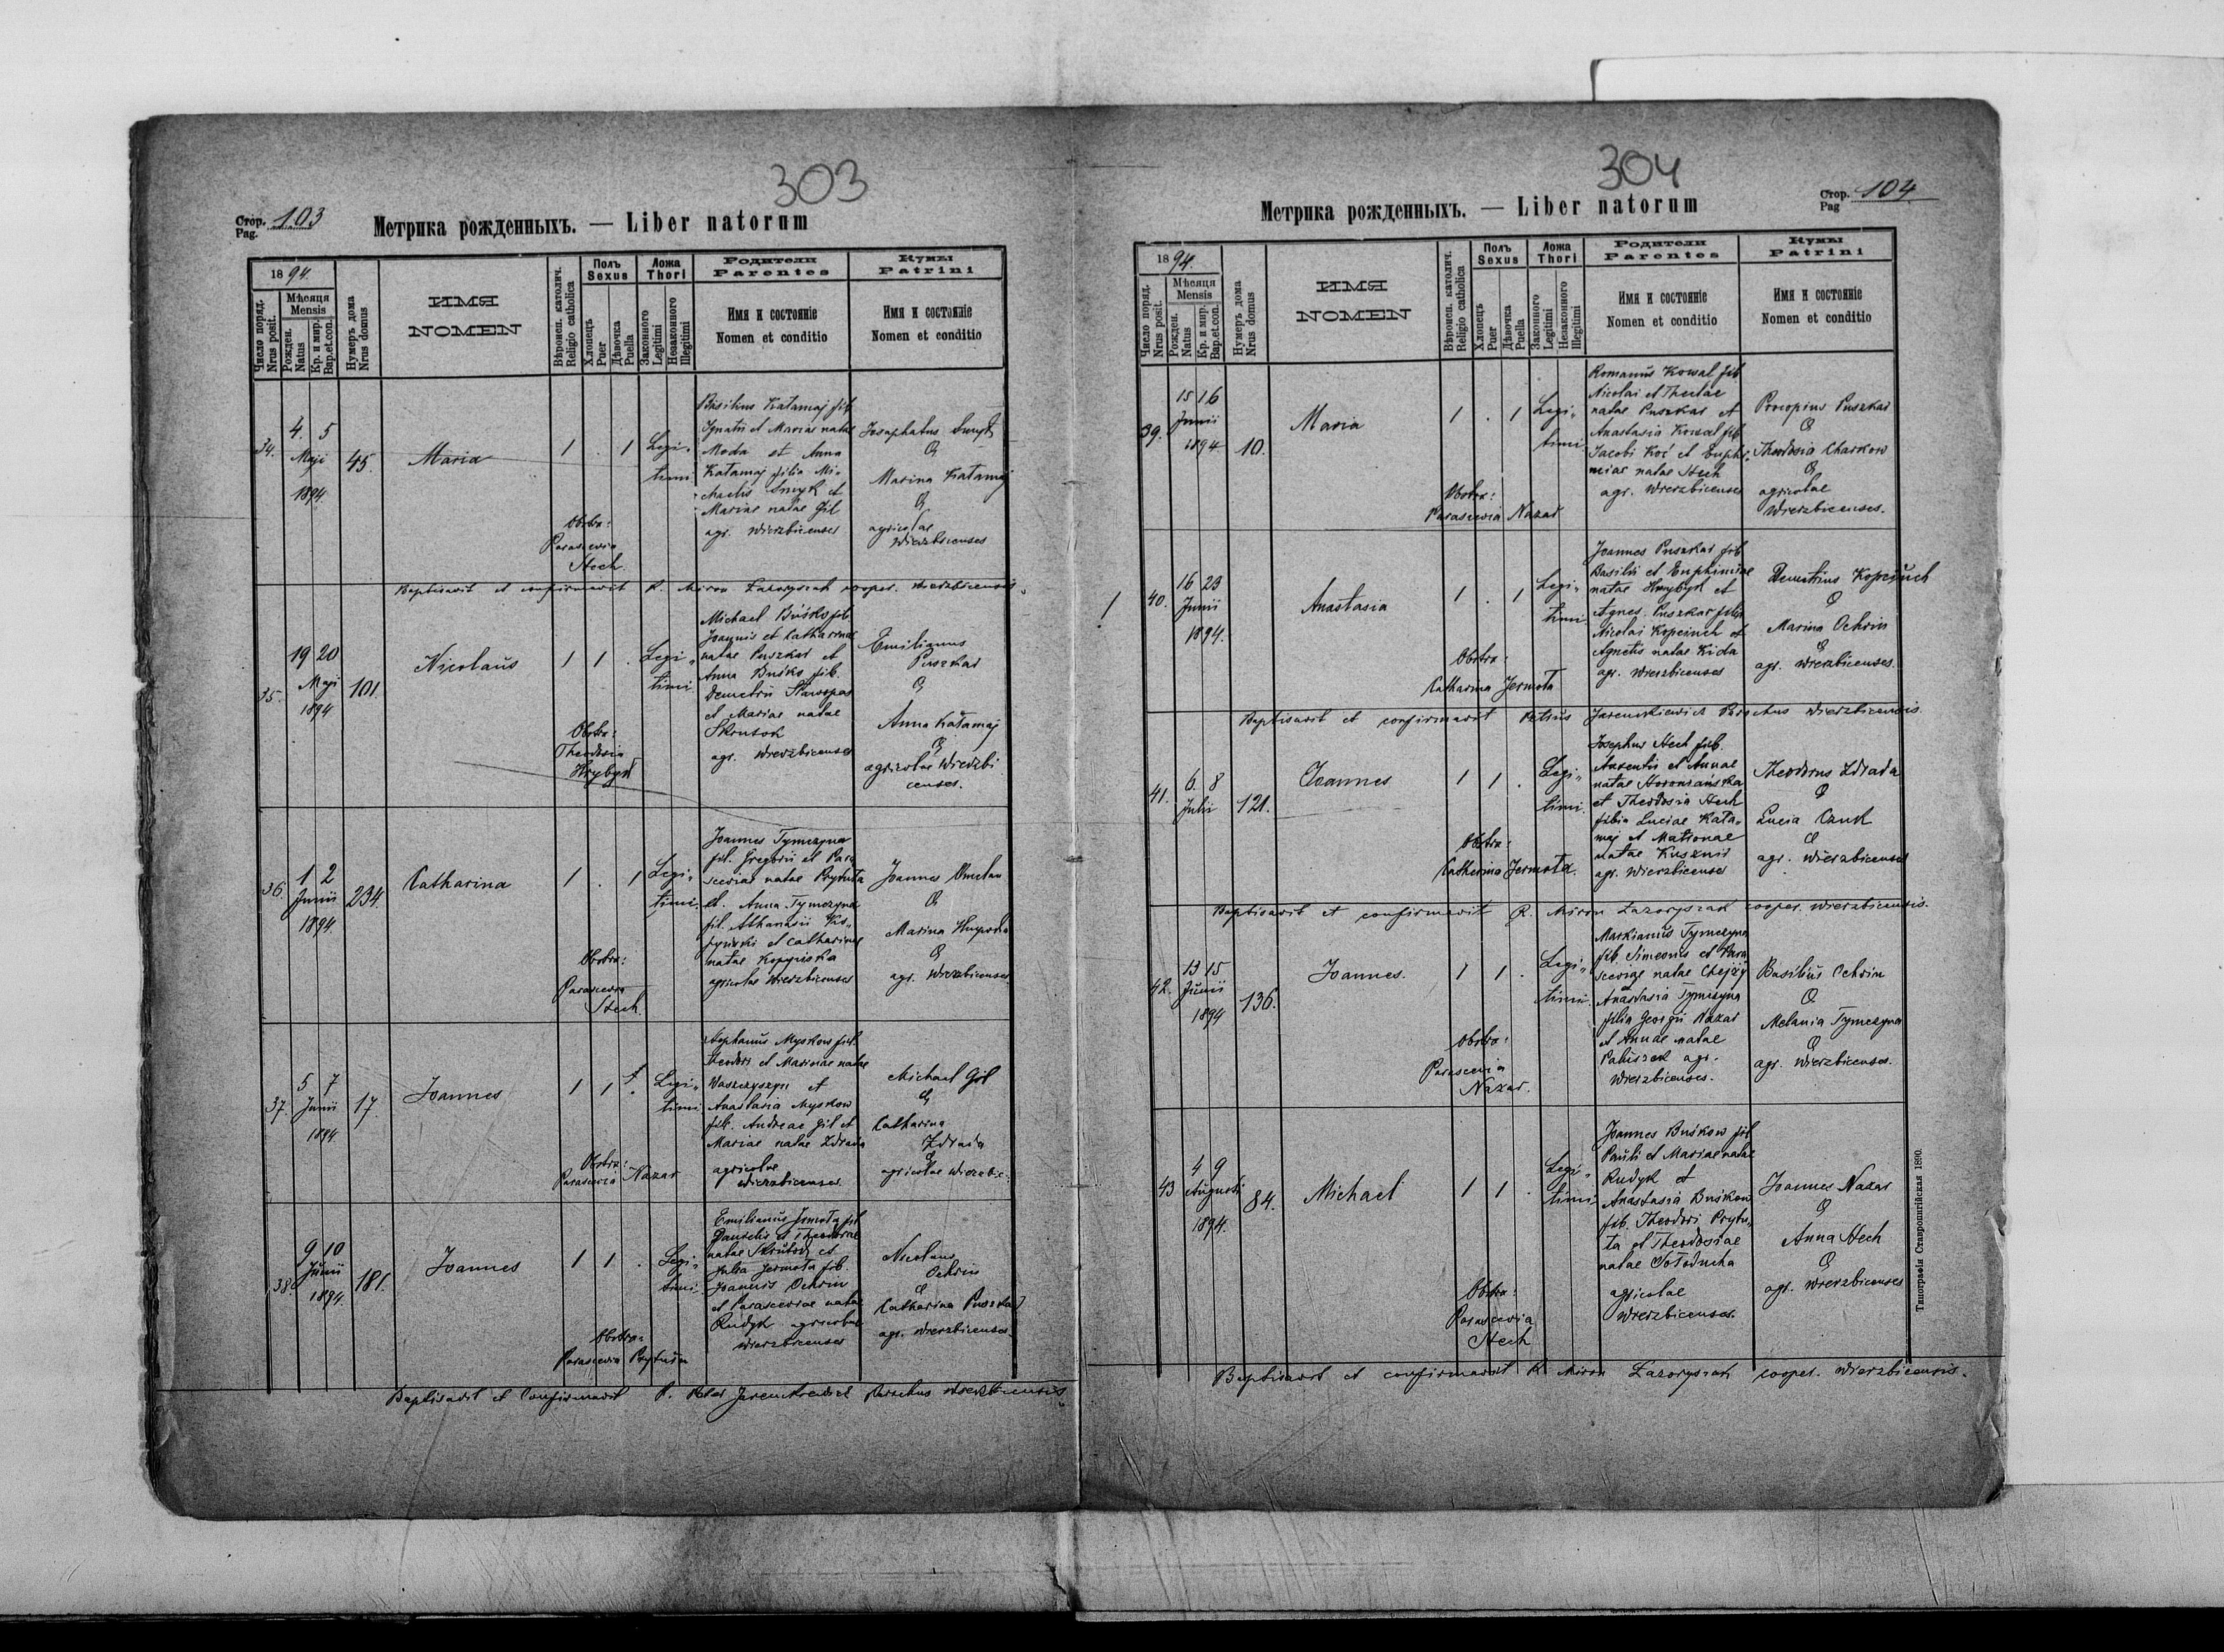 303
Стор. Pag. 103
Метрика рожденныхъ. — Liber natorum
1894.
Число поряд. Nrus posit.
Мѣсяця Mensis
Рожден. Natus
Кр. и мир. Bap.et.con.
Нумеръ дома Nrus domus
ИМЯ
NOMEN
Вѣроисп. католич. Religio catholica
Полъ Sexus
Хлопецъ Puer
Дѣвочка Puella
Ложа Thori
Законного Legitimi
Незаконного Illegitimi
Родители
Parentes
Имя и состояніе
Nomen et conditio
Кумы
Patrini
Имя и состояніе
Nomen et conditio
34. 4. 5 Maji 1894 45. Maria 1 . 1 Legi„timi
Basilius Katamaj fil.
Ignatii et Mariae natae
Moda et Anna
Katamaj filia Mi„
chaelis Smyk et
Mariae natae Gil
agr. Wierzbicenses
Josaphatus Smyk
&
Marina Katamaj
&
agricolae
Wierzbicenses
Obstra:
Parascevia
Stech.
Baptisavit et confirmavit R. Miron Zazorysiak cooper. Wierzbicensis.
35. 19 20 Maji 1894 101. Nicolaus 1 1 . Legi„timi
Michael Buśko fil.
Joannis et Catharinae
natae Puszkar et
Anna Buśko fil.
Demetrii Starospas
et Mariae natae
Skrutok
agr. Wierzbicenses
Emilianus
Puszkar
&
Anna Katamaj
&
agricolae Wierzbi
censes.
Obstra:
Theodosia
Hrybyk
36. 1 2 Junii 1894 234. Catharina 1 . 1 Legi„timi.
Joannes Tymczyna
fil. Gregorii et Para
sceviae natae Prytuła
et. Anna Tymczyna
fil. Athanasii
et Catharinae
natae
agricolae Wierzbicenses
Joannes Omelan
&
Marina
&
agr. Wierzbicenses
Obstra:
Parascevia
Stech.
37. 5 7 Junii 1894 17. Joannes 1 1 . Legi„timi
Stephanus Myskow fil.
Theodori et Marinae natae
Waszczyszyn et
Anastasia Myskow
fil. Andreae Gil et
Mariae natae Zdrada
agricolae
Wierzbicenses
Michael Gil
&
Catharina
Zdrada
&
agricolae Wierzbic.
Obstra:
Parascevia Nazar
38. 9 10 Junii 1894. 181. Joannes 1 1 . Legi„timi.
Emilianus Jermota fil
et Theodorae
natae Skrutok et
Julia Jermota fil.
Joannis Ochrin
et Parasceviae natae
Rudyk agricolae
Wierzbicenses
Nicolaus
Ochrin
&
Catharina Puszkar
agr. Wierzbicenses.
Obstra:
Parascevia Prytuła
Baptisavit et Confirmavit P. Petrus Jaremkiewicz Parochus Wierzbicensis
304
Стор. Pag 104.
Метрика рожденныхъ. — Liber natorum
1894.
Число поряд. Nrus posit.
Мѣсяця Mensis
Рожден. Natus
Кр. и мир. Bap.et.con.
Нумеръ дома Nrus domus
ИМЯ
NOMEN
Вѣроисп. католич. Religio catholica
Полъ Sexus
Хлопецъ Puer
Дѣвочка Puella
Ложа Thori
Законного Legitimi
Незаконного Illegitimi
Родители
Parentes
Имя и состояніе
Nomen et conditio
Кумы
Patrini
Имя и состояніе
Nomen et conditio
39. 15 16 Junii 1894 10. Maria 1 . 1 Legi„timi
Romanus Kowal fil
Nicolai et Theclae
natae Puszkar et
Anastasia Kowal fil.
Jacobi Koć et Euphi„
miae natae Stech
agr. Wierzbicenses
Procopius Puszkar
&
Theodosia Charkow
&
agricolae
Wierzbicenses.
Obstra:
Parascevia Nazar
40. 16 23 Junii 1894. Anastasia 1 . 1 Legi„timi.
Joannes Puszkar fil
Basilii et Euphimiae
natae Hrybyk et
Agnes Puszkar filia
Nicolai Kopciuch et
Agnetis natae Kida
agr. Wierzbicenses
Demetrius Kopciuch
&
Marina Ochrin
&
agr. Wierzbicenses.
Obstra:
Catharina Jermota
Baptisavit et confirmavit Petrus Jaremkiewicz Parochus Wierzbicensis
41. 6. 8 Julii 121. Joannes 1 1 . Legi„timi.
Josephus Stech fil.
Auxentii et Annae
natae
et Theodosia Stech
filia Luciae Kata„
maj et Matronae
natae Kusznir
agr. Wierzbicenses
Theodorus Zdrada
&
Lucia Czuk
&
agr. Wierzbicenses
Obstra:
Catherina Jermota.
Baptisavit et confirmavit R. Miron Zazorysiak cooper. Wierzbicensis.
42. 13 15 Junii 1894 136. Joannes. 1 1 . Legi„timi.
Markianus Tymczyna
fil. Simeonis et Para
sceviae natae
Anastasia Tymczyna
filia Georgii Nazar
et Annae natae
agr.
Wierzbicenses.
Basilius Ochrin
&
Melania Tymczyna
&
agr. Wierzbicenses.
Obstra:
Parascevia
Nazar.
43 4 9 Augusti 1894. 84. Michael 1 1 . Legi„timi.
Joannes Buśkow fil
Pauli et Mariae natae
Rudyk et
Anastasia Buśkow
fil. Theodori Prytu„
ła et Theodosiae
natae Sołoducha
agricolae
Wierzbicenses.
Joannes Nazar
&
Anna Stech
&
agr. Wierzbicenses
Obstra:
Parascevia
Stech
Baptisavit et confirmavit R. Miron Zazorysiak cooper. Wierzbicensis.
Типографія Ставропигійская 1890.